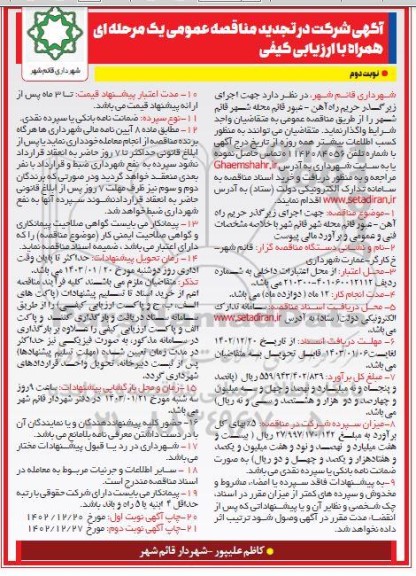 آگهی شرکت در تجدید مناقصه عمومی یک مرحله ای
همراه با ارزیابی کیفی
شهرداری قائم شهر
نوبت دوم
شهرداری قائم شهر، در نظر دارد جهت اجرای
زیرگذر حریم راه آهن - عبور قائم محله شهر قائم
شهر را از طریق مناقصه عمومی به متقاضیان واجد
شرایط واگذار نماید. متقاضیان می توانند به منظور
کسب اطلاعات بیشتر همه روزه از تاریخ درج آگهی
با شماره تلفن تماس حاصل نموده
یا به سایت شهرداری به آدرس Ghaemshahr.ir
مراجعه و به منظور دریافت و خرید اسناد مناقصه به
سامانه تدارک الکترونیکی دولت (ستاد) به آدرس
www.setadiran.ir اقدام نمایند.
۱-موضوع مناقصه: جهت اجرای زیرگذر حریم راه
آهن - عبور قائم محله شهر قائم شهر با خلاصه مشخصات
فنی و عمومی و برآورد مالی پیوست
۲-نام و نشانی دستگاه مناقصه گزار: قائم شهر-
خ کارگر- عمارت شهرداری
۳-محل اعتبار: از محل اعتبارات داخلی به شماره
ردیف می باشد.
۴-مدت انجام کار: ۱۲ ماه (دوازده ماه) می باشد.
۵-محل دریافت اسناد مناقصه: سامانه تدارک
الکترونیکی دولت (ستاد) به آدرس www.setadiran.ir
می باشد.
۶- مهلت دریافت اسناد: از تاریخ ۱۴۰۲/۱۲/۲۰
لغایت ۱۴۰۳/۰۱/۰۶ قابل تحویل به متقاضیان
می باشد.
۷-مبلغ کل برآورد: ۵۵۹/۹۴۳/۴۰۲/۸۳۹ ریال (پانصد
و پنجاه و نه میلیارد و نهصد و چهل و سه میلیون
و چهارصد و دو هزار و هشتصد و سی و نه ریال)
می باشد.
۸-میزان سپرده شرکت در مناقصه: ۵٪ بهای کل
برآورد به مبلغ ۲۷/۹۹۷/۱۷۰/۱۴۲ ریال (بیست و
هفت میلیارد و نهصد و نود و هفت میلیون و یکصد
و هفتاد هزار و یکصد و چهل و دو ریال) به صورت
ضمانت نامه بانکی یا سپرده نقدی می باشد.
۹-به پیشنهادات فاقد سپرده یا امضاء، مشروط و
مخدوش و سپرده های کمتر از میزان مقرر در اسناد،
چک شخصی و نظایر آن و یا پیشنهاداتی که پس از
انقضاء مدت مقرر در آگهی وصول شود ترتیب اثر
داده نخواهد شد.
۱۰- مدت اعتبار پیشنهاد قیمت: تا ۳ ماه پس از
ارائه پیشنهاد قیمت می باشد.
۱۱-نوع سپرده: ضمانت نامه بانکی یا سپرده نقدی.
۱۲-مطابق ماده ۸ آیین نامه مالی شهرداری ها هرگاه
برنده مناقصه از انجام معامله خودداری نماید یا پس از
ابلاغ قانونی حداکثر تا ۷ روز حاضر به انعقاد قرارداد
نشود سپرده به نفع شهرداری ضبط و قرارداد با نفر
بعدی منعقد خواهد گردید ودر صورتی که برندگان
دوم و سوم نیز ظرف مهلت ۷ روز پس از ابلاغ قانونی
حاضر به انعقاد قرارداد نشوند سپرده آنها به نفع
شهرداری ضبط خواهد شد.
۱۳-پیمانکار می بایست گواهی صلاحیت پیمانکاری
و گواهی صلاحیت ایمنی کار (موضوع مناقصه) را که
دارای اعتبار می باشد ، ضمیمه اسناد مناقصه نماید.
۱۴- زمان تحویل پیشنهادات: حداکثر تا پایان وقت
اداری روز دوشنبه مورخ ۱۴۰۳/۰۱/۲۰ می باشد.
تذکر: متقاضیان ملزم می باشند کلیه فرآیند مناقصه
اعم از خرید اسناد تا تسلیم پیشنهادات (پاکت های
الف-ب-ج و پاکت ارزیابی کیفی) را از طریق
سامانه ستاد دریافت و بارگذاری کنند و پاکت
الف و پاکت ارزیابی کیفی را علاوه بر بارگذاری
در سامانه مذکور، به صورت فیزیکی نیز حداکثر
در مدت زمان تعیین شده (مهلت تسلیم پیشنهادها)
پس از کسب دبیرخانه، تحویل واحد قراردادهای
شهرداری گردد.
۱۵-زمان و محل بازگشایی پیشنهادات: ساعت ۹ روز
سه شنبه مورخ ۱۴۰۳/۰۱/۲۱ در دفتر شهردار قائم شهر
می باشد.
۱۶-حضور کلیه پیشنهاددهندگان و یا نمایندگان آن
با در دست داشتن معرفی نامه بلامانع می باشد.
۱۷-شهرداری در رد یا قبول پیشنهادات مختار
می باشد.
۱۸ - سایر اطلاعات و جزئیات مربوط به معامله در
اسناد مناقصه مندرج است.
۱۹-پیمانکار می بایست دارای شرکت حقوقی با رتبه
حداقل ۴ ابنیه یا ۵ راه و باند باشد.
۲۰-چاپ آگهی نوبت اول: مورخ ۱۴۰۲/۱۲/۲۰
۲۱-چاپ آگهی نوبت دوم: مورخ ۱۴۰۲/۱۲/۲۷
کاظم علیپور - شهردار قائم شهر